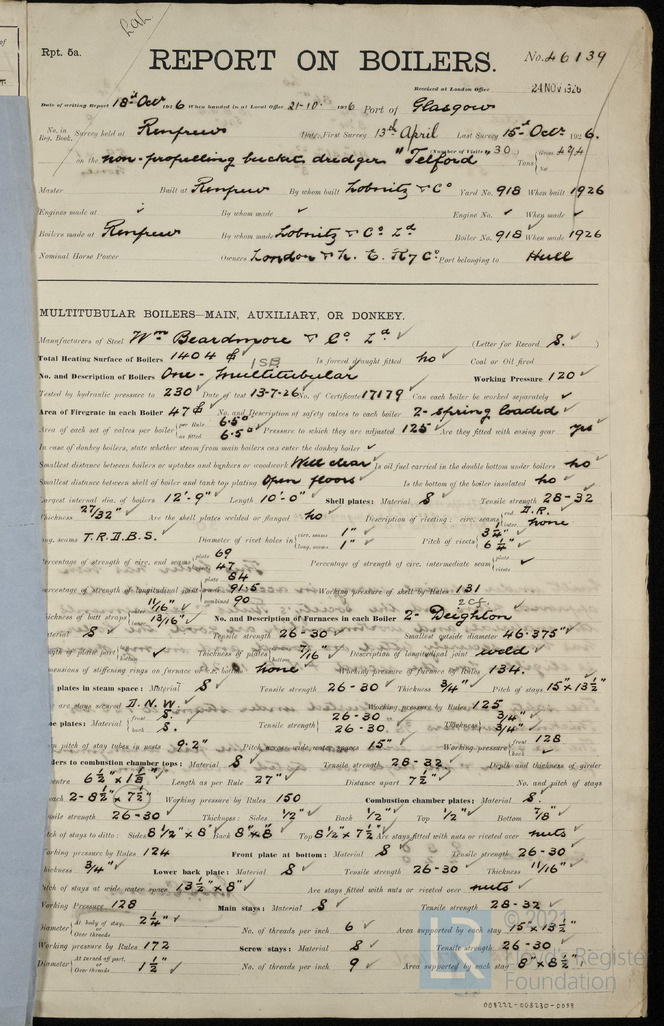 Rpt. 5a.
REPORT ON BOILERS.
No. 46139
Received at London Office 24 NOV 1926
Date of writing Report 18th Octr 1926 When handed in at Local Office 21-10 1926 Port of Glasgow
No. in Reg. Book. Survey held at Renfrew Date, First Survey 13th April Last Survey 15th Octr 1926.
on the non-propelling bucket dredger "Telford" (Number of Visits 30) Tons Gross 474 Net
Master Built at Renfrew By whom built Lobnitz & Co Yard No. 918 When built 1926
Engines made at ✓ By whom made ✓ Engine No. ✓ When made ✓
Boilers made at Renfrew By whom made Lobnitz & Co Ld Boiler No. 918 When made 1926
Nominal Horse Power Owners London & N. E. Ry Co. Port belonging to Hull
MULTITUBULAR BOILERS—MAIN, AUXILIARY, OR DONKEY.
Manufacturers of Steel Wm Beardmore & Co. Ld ✓ (Letter for Record S. ✓)
Total Heating Surface of Boilers 1404 ✓ 1SB Is forced draught fitted no ✓ Coal or Oil fired
No. and Description of Boilers One - Multitubular ✓ Working Pressure 120 ✓
Tested by hydraulic pressure to 230 ✓ Date of test 13-7-26 No. of Certificate 17179 Can each boiler be worked separately ✓
Area of Firegrate in each Boiler 47 ✓ No. and Description of safety valves to each boiler 2 - spring loaded ✓
Area of each set of valves per boiler per Rule 6.5" as fitted 6.5" ✓ Pressure to which they are adjusted 125 ✓ Are they fitted with easing gear yes
In case of donkey boilers, state whether steam from main boilers can enter the donkey boiler ✓
Smallest distance between boilers or uptakes and bunkers or woodwork Well clear Is oil fuel carried in the double bottom under boilers no ✓
Smallest distance between shell of boiler and tank top plating Open floors ✓ Is the bottom of the boiler insulated no ✓
Largest internal dia. of boilers 12'-9" Length 10'-0" Shell plates: Material S ✓ Tensile strength 28-32
Thickness 27/32" ✓ Are the shell plates welded or flanged no ✓ Description of riveting: circ. seams end D.R. inter. none
long. seams T.R.D.B.S. Diameter of rivet holes in circ. seams 1" ✓ long. seams 1" ✓ Pitch of rivets 3 1/4" ✓ 6 1/4" ✓
Percentage of strength of circ. end seams plate 69 rivets 47 Percentage of strength of circ. intermediate seam plate rivets ✓
Percentage of strength of longitudinal joint plate 84 rivets 91.5 combined 90 Working pressure of shell by Rules 131
Thickness of butt straps 11/16" ✓ 13/16" ✓ No. and Description of Furnaces in each Boiler 2 - Deighton 2cf
Material S ✓ Tensile strength 26-30 ✓ Smallest outside diameter 46.375" ✓
Length of plain part top bottom ✓ Thickness of plates 7/16" ✓ Description of longitudinal joint weld ✓
Dimensions of stiffening rings on furnace or c.c. bottom none ✓ Working pressure of furnace by Rules 134.
plates in steam space: Material S ✓ Tensile strength 26-30 ✓ Thickness 3/4" ✓ Pitch of stays 15" x 13 1/2" ✓
are stays secured D.N.W. ✓ Working pressure by Rules 125
Tube plates: Material front S. back S. ✓ Tensile strength 26-30 26-30 ✓ Thickness 3/4" ✓ 3/4" ✓
Mean pitch of stay tubes in nests 9.2" ✓ Pitch across wide water spaces 15" ✓ Working pressure front 128 back ✓
Girders to combustion chamber tops: Material S ✓ Tensile strength 28-32 ✓ Depth and thickness of girder
centre 6 1/2" x 1 1/8" ✓ Length as per Rule 27" ✓ Distance apart 7 1/2" ✓ No. and pitch of stays
each 2 - 8 1/2" x 7 1/2" ✓ Working pressure by Rules 150 Combustion chamber plates: Material S. ✓
Tensile strength 26-30 ✓ Thickness: Sides 1/2" ✓ Back 1/2" ✓ Top 1/2" ✓ Bottom 7/8" ✓
Pitch of stays to ditto: Sides 8 1/2" x 8" ✓ Back 8" x 8" ✓ Top 8 1/2" x 7 1/2" ✓ Are stays fitted with nuts or riveted over nuts ✓
Working pressure by Rules 124 Front plate at bottom: Material S ✓ Tensile strength 26-30 ✓
Thickness 3/4" ✓ Lower back plate: Material S ✓ Tensile strength 26-30 ✓ Thickness 11/16" ✓
Pitch of stays at wide water space 13 1/2" x 8" ✓ Are stays fitted with nuts or riveted over nuts ✓
Working Pressure 128 Main stays: Material S ✓ Tensile strength 28-32 ✓
Diameter At body of stay, or Over threads 2 1/4" ✓ No. of threads per inch 6 ✓ Area supported by each stay 15" x 13 1/2" ✓
Working pressure by Rules 172 Screw stays: Material S ✓ Tensile strength 26-30 ✓
Diameter At turned off part, or Over threads 1 1/2" ✓ No. of threads per inch 9 ✓ Area supported by each stay 8" x 8 1/2" ✓
© 2021
Lloyd's Register
Foundation
LR
008222-008230-0088